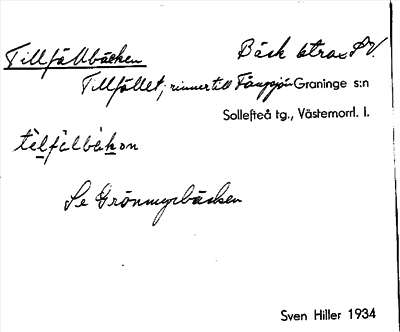 Tillfällbäcken Bäck strax S V.
Tillfället; rinner till Fångsjön Graninge s:n
Sollefteå tg., Västernorrl. l.
tèlfälbäkən
Se Grönmyrbäcken
Sven Hiller 1934